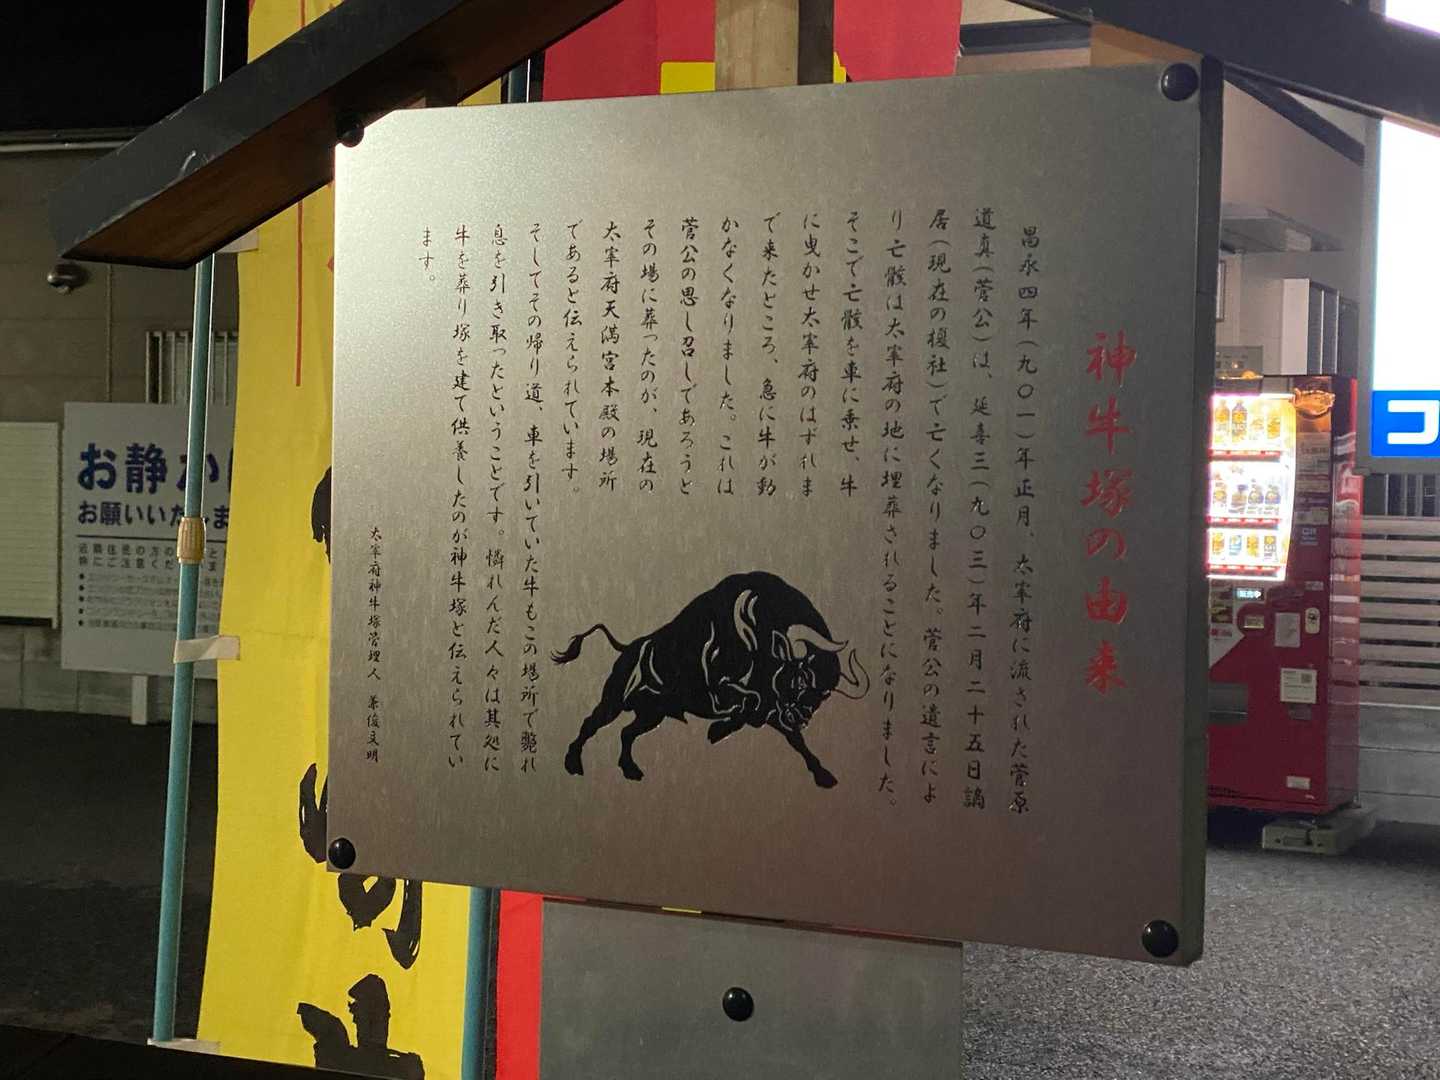 神牛塚の由来
昌永四年(九〇一)年正月、太宰府に流された菅原
道真(菅公)は、延喜三(九〇三)年二月二十五日謫
居(現在の榎社)で亡くなりました。菅公の遺言によ
り亡骸は太宰府の地に埋葬されることになりました。
そこで亡骸を車に乗せ、牛
に曳かせ太宰府のはずれま
で来たところ、急に牛が動
かなくなりました。これは
菅公の思し召しであろうと
その場に葬ったのが、現在の
太宰府天満宮本殿の場所
であると伝えられています。
そしてその帰り道、車を引いていた牛もこの場所で斃れ
息を引き取ったということです。憐れんだ人々は其処に
牛を葬り塚を建て供養したのが神牛塚と伝えられてい
ます。
太宰府神牛塚管理人
お静か
お願いいたしま
コ